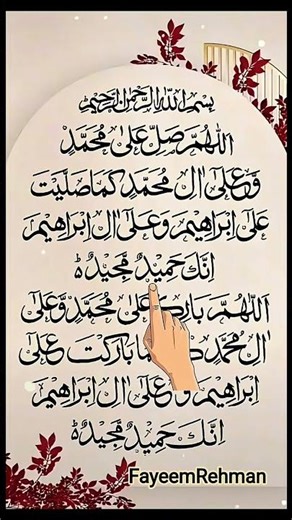 بِسْمِ اللهِ الرَّحْمٰنِ الرَّحِيْمِ
اَللّٰهُمَّ صَلِّ عَلٰى مُحَمَّدٍ
وَّعَلٰٓى اٰلِ مُحَمَّدٍ كَمَا صَلَّيْتَ
عَلٰٓى اِبْرَاهِيْمَ وَعَلٰٓى اٰلِ اِبْرَاهِيْمَ
اِنَّكَ حَمِيْدٌ مَّجِيْدٌ ؕ
اَللّٰهُمَّ بَارِكْ عَلٰى مُحَمَّدٍ وَّعَلٰٓى
اٰلِ مُحَمَّدٍ كَمَا بَارَكْتَ عَلٰٓى
اِبْرَاهِيْمَ وَعَلٰٓى اٰلِ اِبْرَاهِيْمَ
اِنَّكَ حَمِيْدٌ مَّجِيْدٌ ؕ
FayeemRehman